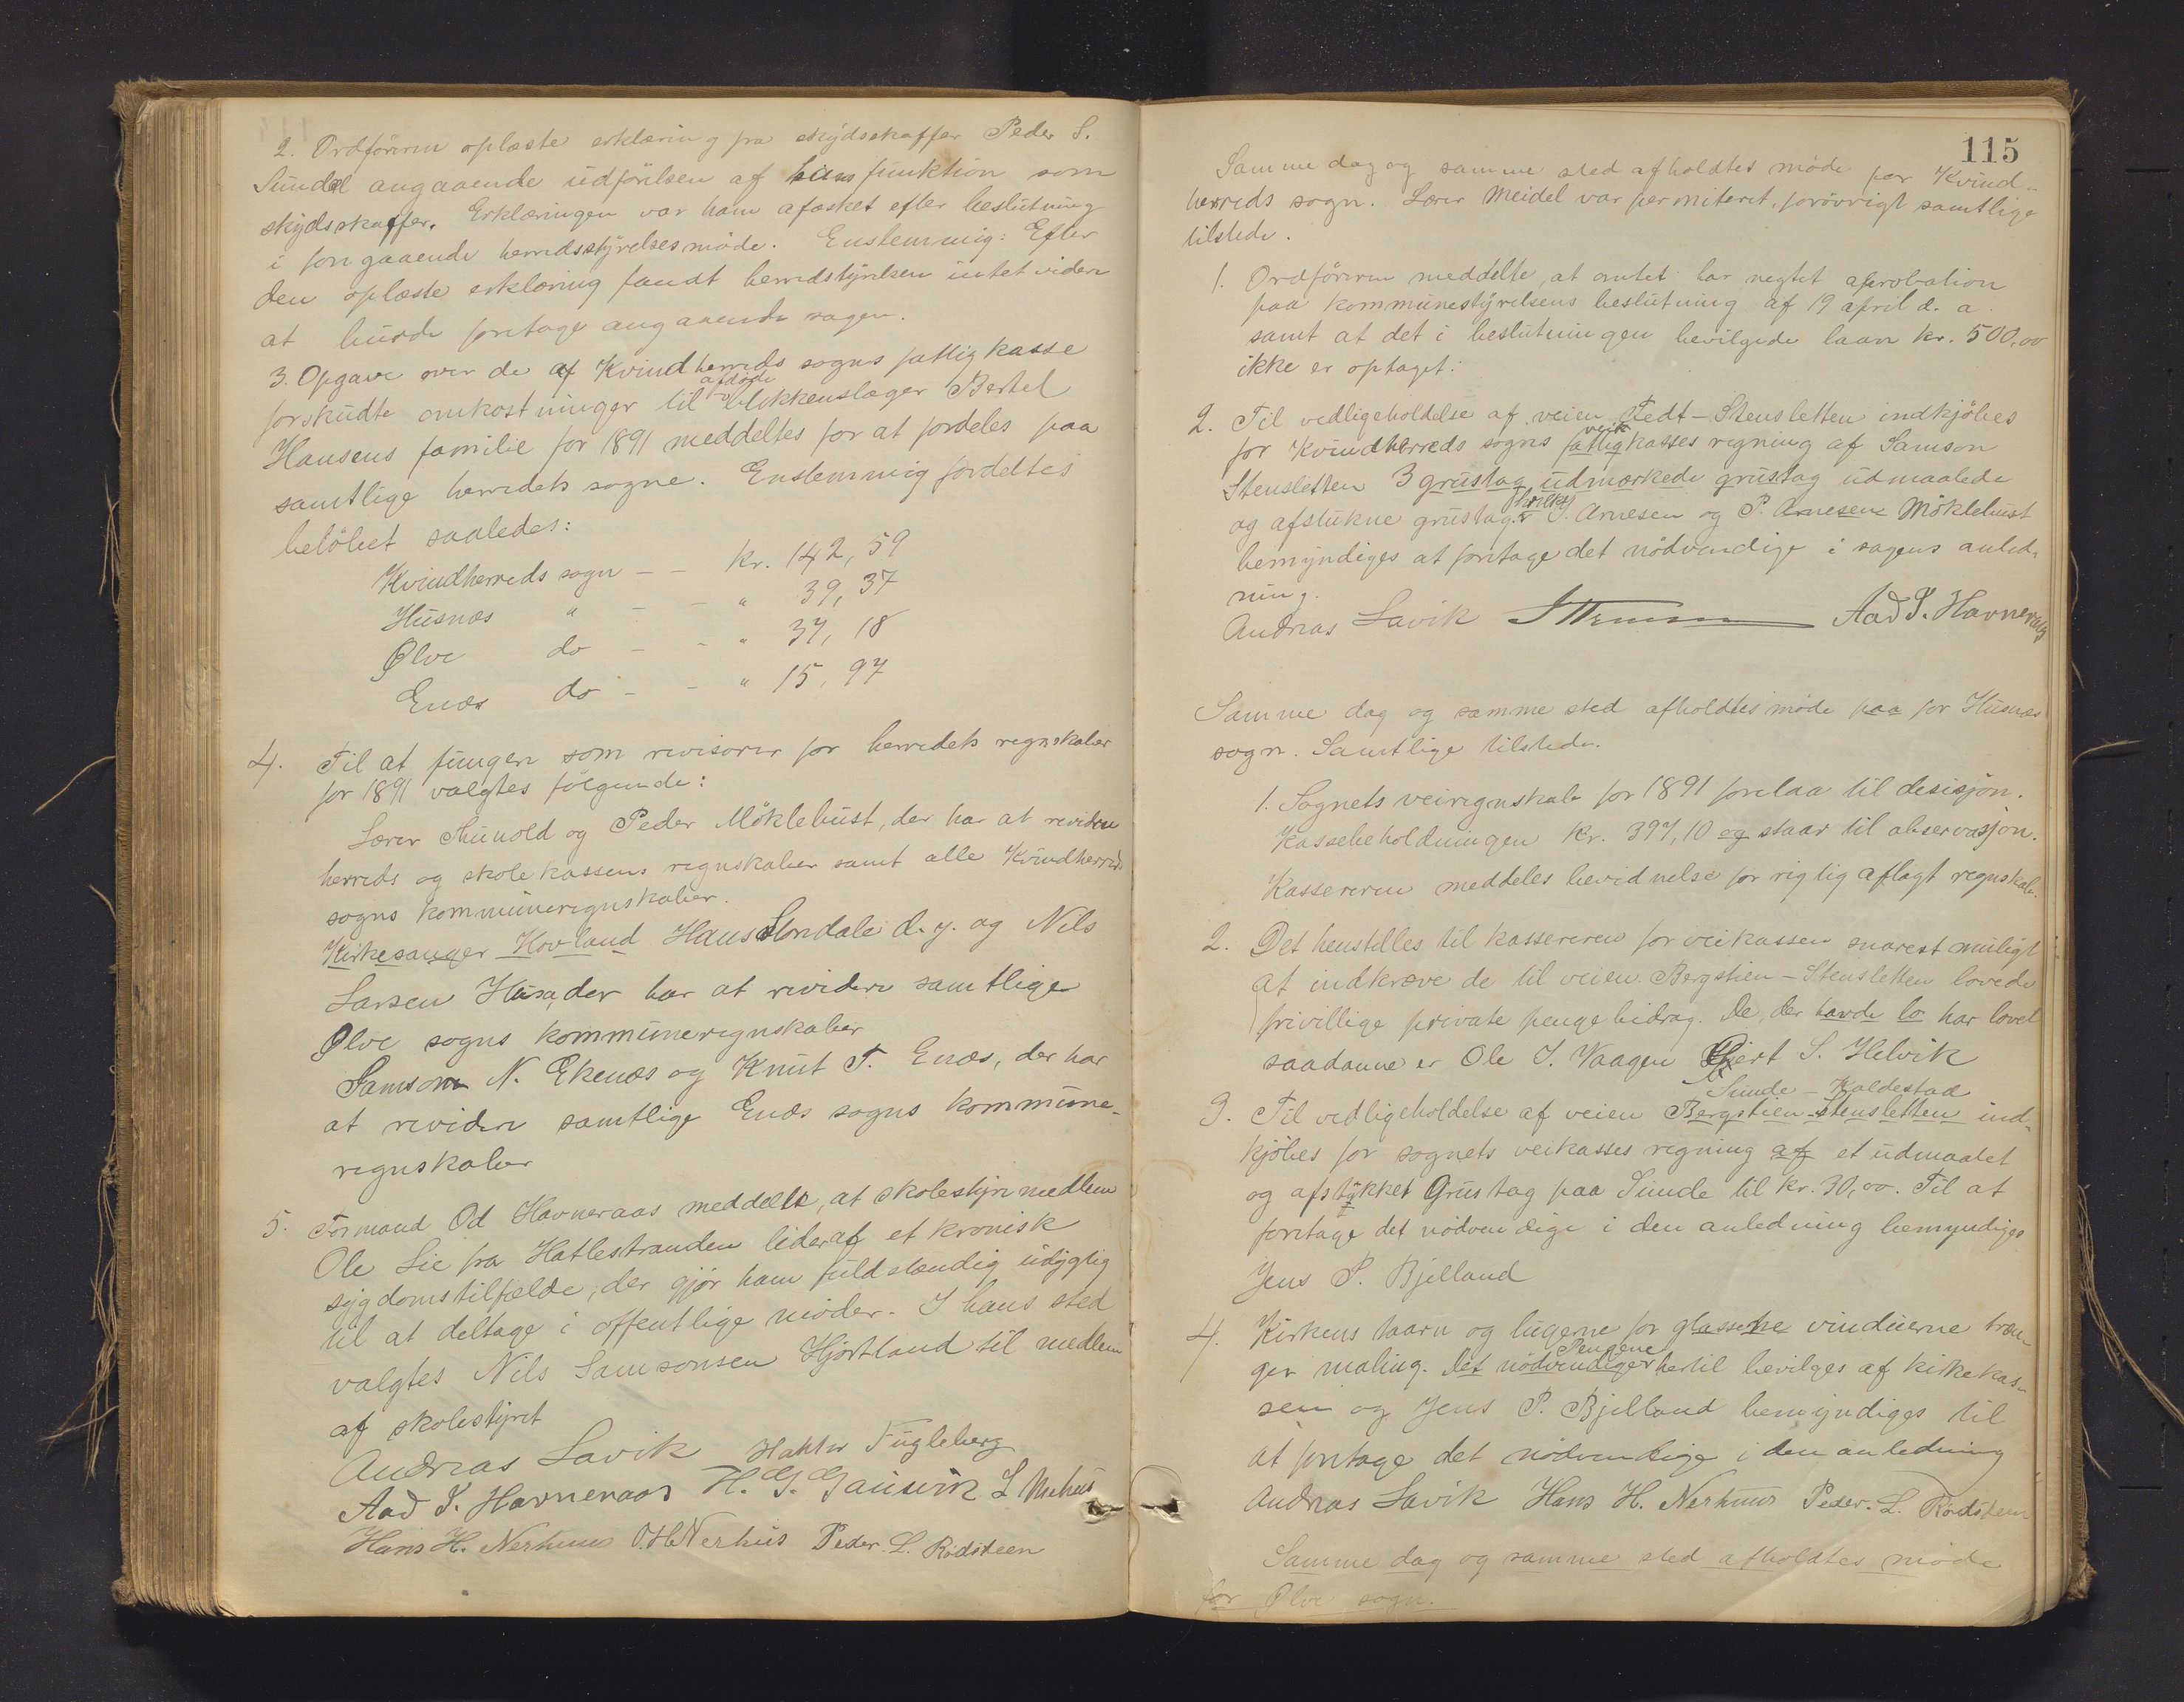 2. Ordföreren oplæste erklæring fra skydsskaffer Peder S.
Sundal angaaende udförelsen af hans funktion som
skydsskaffer. Erklæringen var ham afæsket efter beslutning
i foregaaende herredsstyrelsesmöde. Enstemmig: Efter
den oplæste erklæring fandt herredstyrelsen intet videre
at burde foretage angaaende sagen.
3. Opgave over de af Kvindherreds sogns fattigkasse
forskudte omkostninger til afdöde blikkenslager Bertel
Hansens familie for 1891 meddeltes for at fordeles paa
samtlige herredets sogne. Enstemmig fordeltes
belöbet saaledes:
Kvindherreds sogn — — kr. 142,59
Husnæs " — — " 39,37
Ølve do — — " 37,18
Enæs do — — " 15,97
4. Til at fungere som revisorer for herredets regnskaber
for 1891 valgtes fölgende:
Lærer Thunold og Peder Möklebust, der har at revidere
herreds og skolekassens regnskaber samt alle Kvindherreds
sogns kommuneregnskaber.
Kirkesanger Hovland Hans Stondale d.y. og Nils
Larsen Husa, der har at revidere samtlige
Ølve sogns kommuneregnskaber
Samson N. Ekenæs og Knut T. Enæs, der har
at revidere samtlige Enæs sogns kommune-
regnskaber
5. Formand Od Havneraas meddelte, at skolestyremedlem
Ole Lie fra Hatlestranden lider af et kronisk
sygdomstilfælde, der gjör ham fuldstændig udygtig
til at deltage i offentlige möder. I hans sted
valgtes Nils Samsonsen Hjortland til medlem
af skolestyret
Andreas Lavik Haktor Fugleberg
Aad T. Havneraas H. G. Gausvik L Mehus
Hans H. Nerhuus O.H.Nerhus Peder. L. Rödsteen
115
Samme dag og samme sted afholdtes möde for Kvind-
herreds sogn. Lærer Meidel var permiteret, forövrigt samtlige
tilstede.
1. Ordföreren meddelte, at amtet har negtet aprobation
paa kommunestyrelsens beslutning af 19 april d. a.
samt at det i beslutningen bevilgede laan kr. 500,00
ikke er optaget.
2. Til vedligeholdelse af veien Tedt–Stensletten indkjöbes
for Kvindherreds sogns fattigkasses veik regning af Samson
Stensletten 3 grustag udmærkede grustag udmaalede
og afstukne grustag. hvilket J. Arnesen og P. Arnesen Möklebust
bemyndiges at foretage det nödvendige i sagens anled-
ning.
Andreas Lavik Aad T. Havneraas
Samme dag og samme sted afholdtes möde paa for Husnæs
sogn. Samtlige tilstede.
1. Sognets veiregnskab for 1891 forelaa til desisjon.
Kassebeholdningen kr. 397,10 og staar til observasjon.
Kassereren meddeles bevidnelse for rigtig aflagt regnskab.
2. Det henstilles til kassereren for veikassen snarest muligt
at indkræve de til veien Bergstien–Stensletten lovede
frivillige private pengebidrag. De, der havde lo har lovet
saadanne er Ole J. Vaagen Gjert S. Helvik
Sunde – Kaldestad
3. Til vedligeholdelse af veien Bergstien-Stensletten ind-
kjöbes for sognets veikasses regning af et udmaalet
og afstykket Grustag paa Sunde til kr. 30,00. Til at
foretage det nödvendige i den anledning bemyndiges
Jens P. Bjelland
4. Kirkens taarn og lugerne for glassene vinduerne træn-
ger maling. Det nödvendige Pengene hertil bevilges af kikekas-
sen og Jens P. Bjelland bemyndiges til
at foretage det nödvendige i den anledning
Andreas Lavik Hans H. Nerhuus Peder. L. Rödsteen
Samme dag og samme sted afholdtes möde
for Ølve sogn.